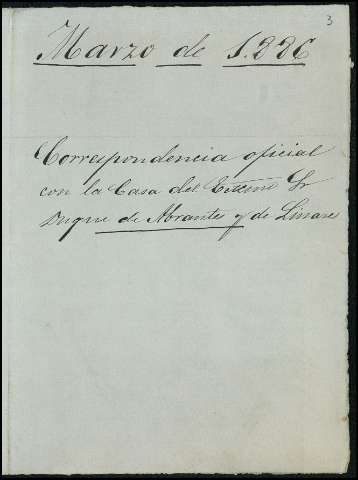 3
Marzo de 1.886
Correspondencia oficial
con la Casa del Exmo Sr
Duque de Abrantes y de Linares